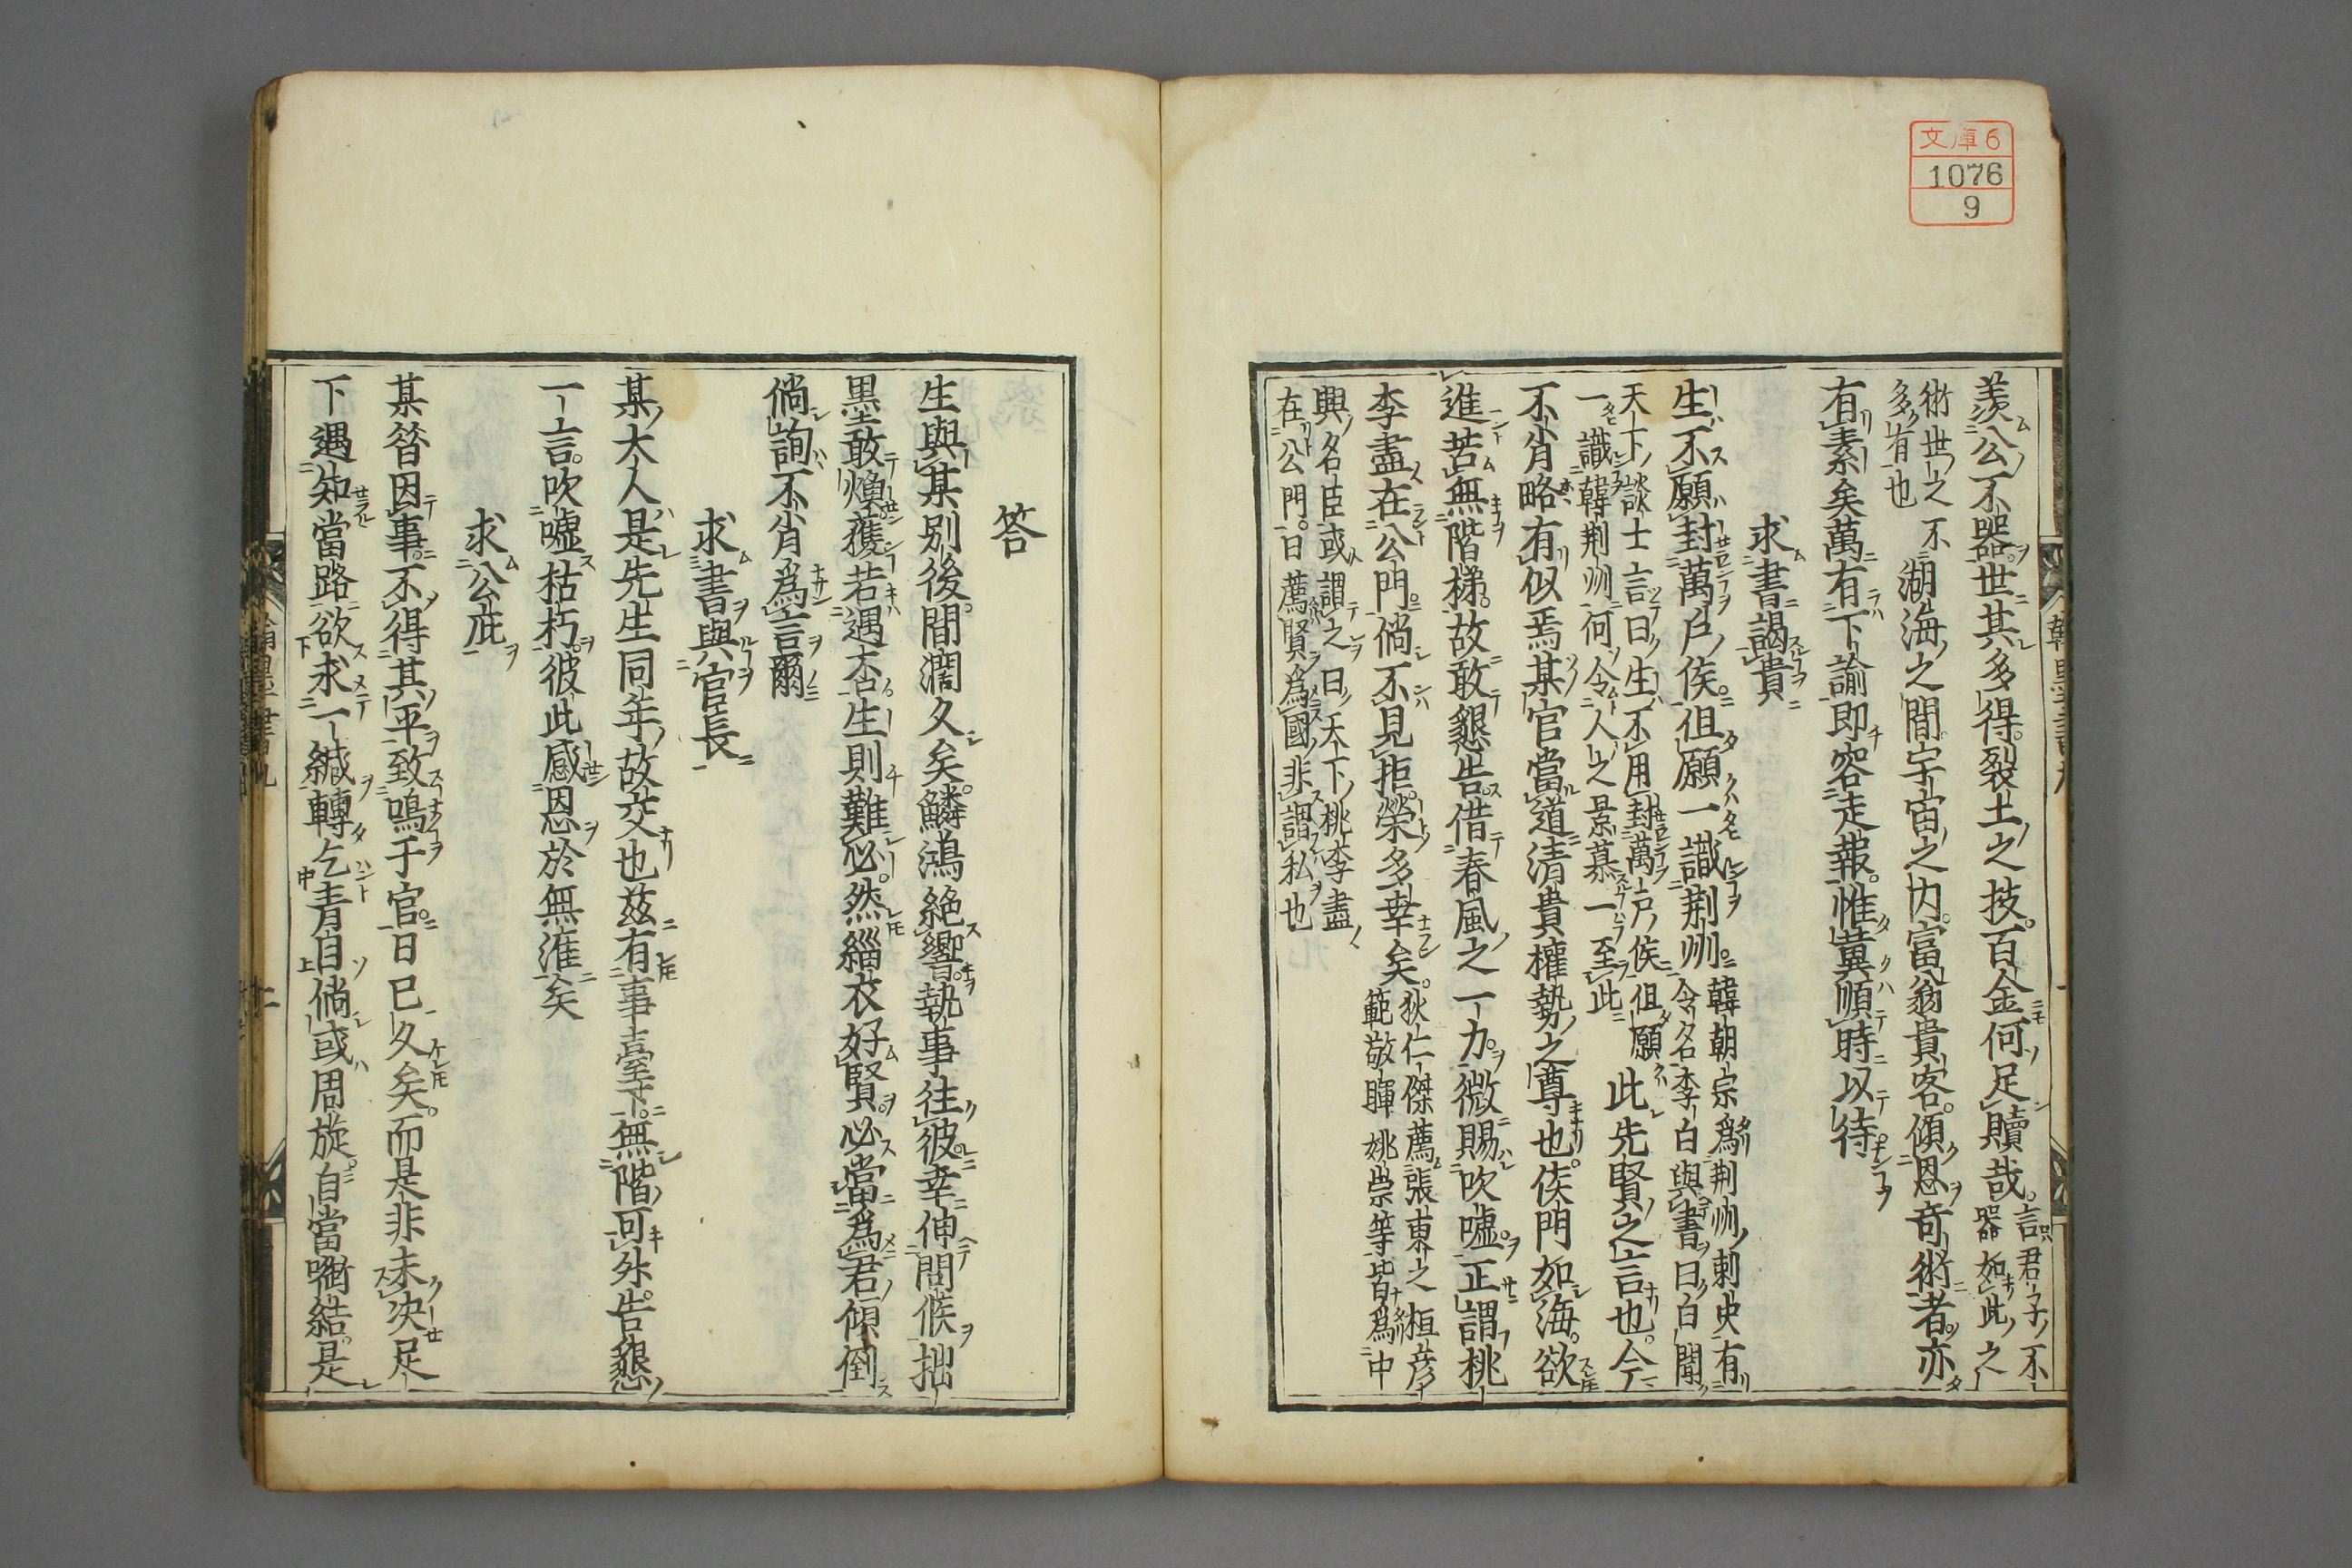 文庫6
1076
9
羨公不器世其多得裂土之技百金何足贖哉言君子不
器如此之
術世之不
多有也
湖海之間宇宙之内富翁貴客傾恩奇術者亦
有素矣萬有下諭即容走報惟冀順時以待
求書謁貴
生不願封萬戶侯但願一識荆州韓朝宗爲荆州刺史有
令名李白與書曰白聞
天下談士言曰生不用封萬戶侯但願
一識韓荆州何令人之景慕一至此
此先賢之言也今
不肖略有似焉某官當道清貴權勢之尊也侯門如海欲
進苦無階梯故敢懇告借春風之一力微賜吹噓正謂桃
李盡在公門倘不見拒榮多幸矣狄仁傑薦張東之桓彦
範敬暉姚崇等皆爲中
興名臣或謂之曰天下桃李盡
在公門曰薦賢爲國非謂私也
答
生與某别後間濶久矣鱗鴻絶響執事往彼幸伸問候拙
墨敢煩獲若遇否生則難必然緇衣好賢必當爲君傾倒
倘詢不肖爲言爾
求書與官長
某大人是先生同年故交也兹有事臺下無階可外告懇
一言吹噓枯朽彼此感恩於無涯矣
求公庇
某昝因事不得其平致鳴于官日已久矣而是非未决足
下遇知當路欲求一緘轉乞青自倘或周旋自當啣結是
二